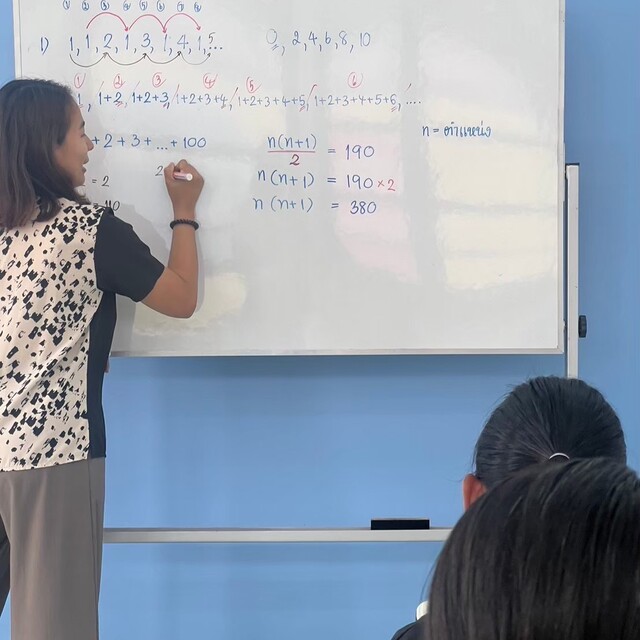 ① ② ③ ④ ⑤ ⑥ ⑦ ⑧
1) 1, 1, 2, 1, 3, 1, 4, 1, 5...
0, 2, 4, 6, 8, 10
① ② ③ ④ ⑤ ⑥
1, 1+2, 1+2+3, 1+2+3+4, 1+2+3+4+5, 1+2+3+4+5+6, ....
n = ตำแหน่ง
+ 2 + 3 + ... + 100
n(n+1)/2 = 190
= 2
2
n(n+1) = 190 × 2
n(n+1) = 380